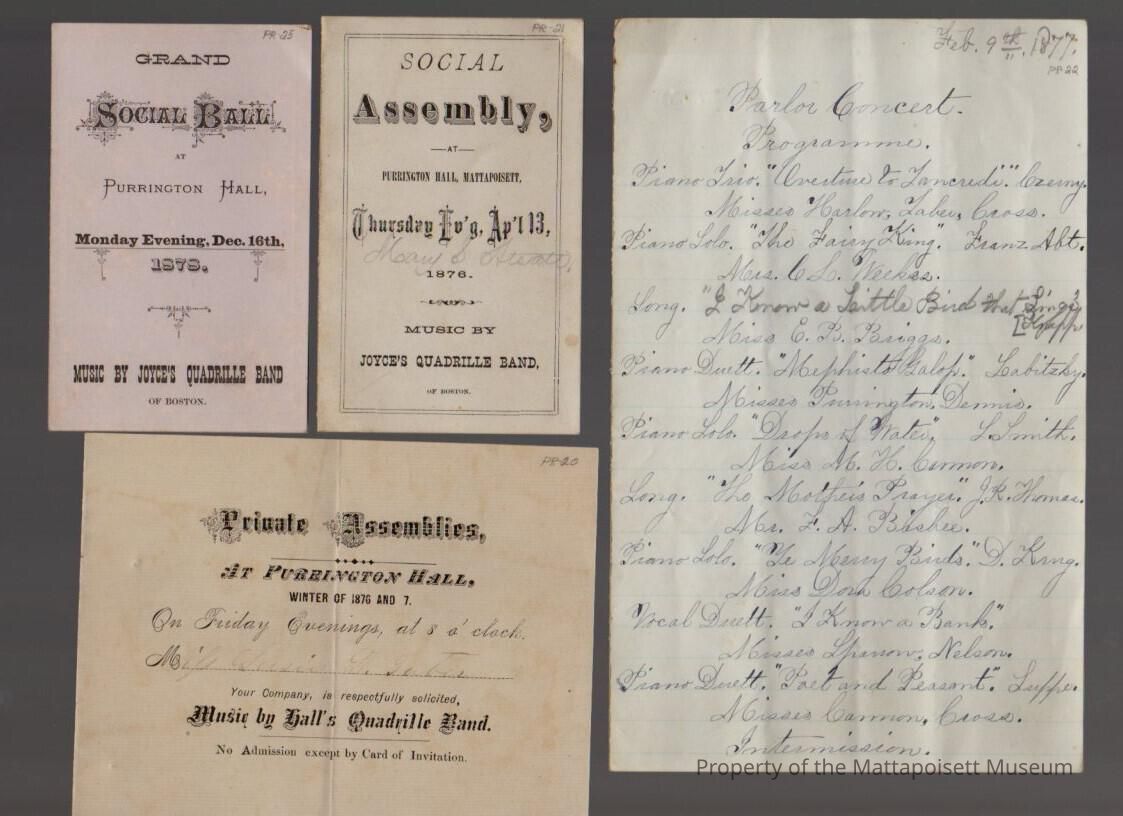 PR-25
GRAND
SOCIAL BALL
AT
PURRINGTON HALL,
Monday Evening, Dec. 16th,
1878.
MUSIC BY JOYCE'S QUADRILLE BAND
OF BOSTON.
PR-21
SOCIAL
Assembly,
AT
PURRINGTON HALL, MATTAPOISETT,
Thursday Ev'g, Ap'l 13,
Mary S.
1876.
MUSIC BY
JOYCE'S QUADRILLE BAND,
OF BOSTON.
PR-20
Private Assemblies,
AT PURRINGTON HALL,
WINTER OF 1876 AND 7.
On Friday Evenings, at 8 o'clock.
Miss
Your Company, is respectfully solicited,
Music by Hall's Quadrille Band.
No Admission except by Card of Invitation.
Feb. 9th, 1877.
PR-22
Parlor Concert.
Programme.
Piano Trio. "Overture to Tancredi." Czerny.
Misses Harlow, Taber, Cross.
Piano Solo. "The Fairy King". Franz Abt.
Mrs. C. L. Weekes.
Song. "I Know a Little Bird that Sings"
[Knapp
Miss E. B. Briggs.
Piano Duett. "Mephisto Galop." Labitzky.
Misses Purrington, Dennis.
Piano Solo. "Drops of Water". S. Smith.
Miss M. H. Cannon.
Song. "The Mother's Prayer." J. R. Thomas.
Mr. F. A. Bisbee.
Piano Solo. "Ye Merry Birds". D. Krug.
Miss Dora Colson.
Vocal Duett. "I Know a Bank".
Misses Sparrow, Nelson.
Piano Duett. "Poet and Peasant." Suppe.
Misses Cannon, Cross.
Intermission.
Property of the Mattapoisett Museum